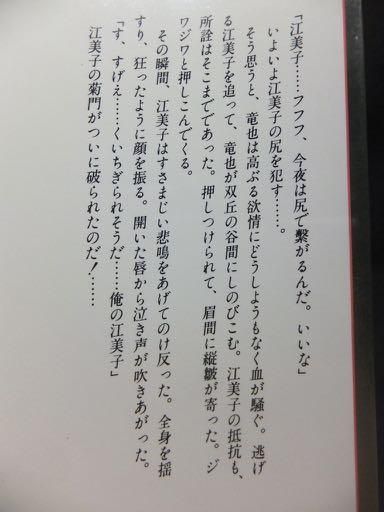 「江美子……フフフ、今夜は尻で繋がるんだ。いいな」
いよいよ江美子の尻を犯す……。
そう思うと、竜也は高ぶる欲情にどうしようもなく血が騒ぐ。逃げ
る江美子を追って、竜也が双丘の谷間にしのびこむ。江美子の抵抗も、
所詮はそこまでであった。押しつけられて、眉間に縦皺が寄った。ジ
ワジワと押しこんでくる。
その瞬間、江美子はすさまじい悲鳴をあげてのけ反った。全身を揺
すり、狂ったように顔を振る。開いた唇から泣き声が吹きあがった。
「す、すげえ……くいちぎられそうだ……俺の江美子」
江美子の菊門がついに破られたのだ！……